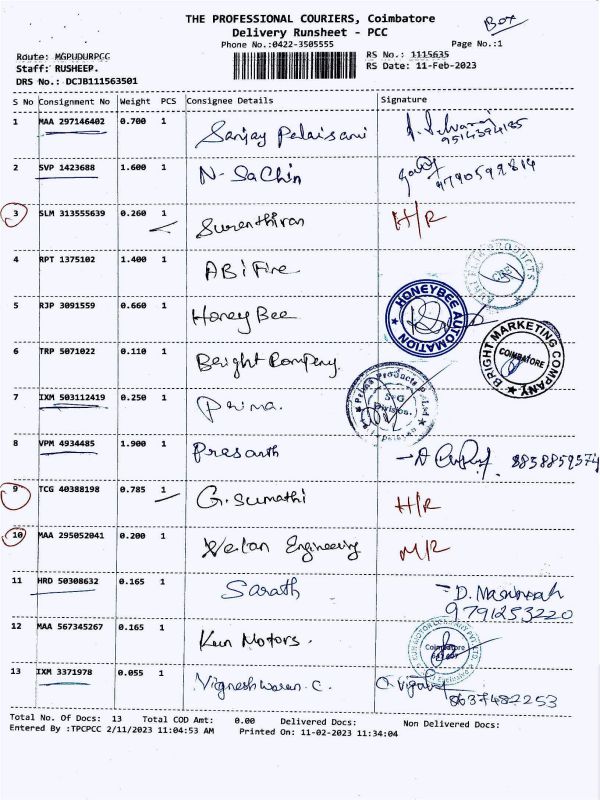 THE PROFESSIONAL COURIERS, Coimbatore
Box
Delivery Runsheet - PCC
Phone No.:0422-3505555
Page No.:1
Route: MGPUDURPCC
RS No.: 1115635
Staff: RUSHEEP.
RS Date: 11-Feb-2023
DRS No.: DCJB111563501
S No Consignment No Weight PCS Consignee Details Signature
1 MAA 297146402 0.700 1 Sanjay Palaisami
9514394185
2 SVP 1423688 1.600 1 N-Sachin
9790599814
3 SLM 313555639 0.260 1 Surenthiran H/R
4 RPT 1375102 1.400 1 ABi Fire
5 RJP 3091559 0.660 1 HoneyBee HONEYBEE AUTOMATION
6 TRP 5071022 0.110 1 Bright Company. BRIGHT MARKETING COMPANY COIMBATORE
7 IXM 503112419 0.250 1 Prima. Prima Products
Division.
8 VPM 4934485 1.900 1 Prasanth 8838859374
9 TCG 40388198 0.785 1 G.Sumathi H/R
10 MAA 295052041 0.200 1 Velan Engineering M/R
11 HRD 50308632 0.165 1 Sarath
9791253220
12 MAA 567345267 0.165 1 Kun Motors. Coimbatore
13 IXM 3371978 0.055 1 Vigneshwaran.C.
8637482253
Total No. Of Docs: 13 Total COD Amt: 0.00 Delivered Docs: Non Delivered Docs:
Entered By :TPCPCC 2/11/2023 11:04:53 AM Printed On: 11-02-2023 11:34:04